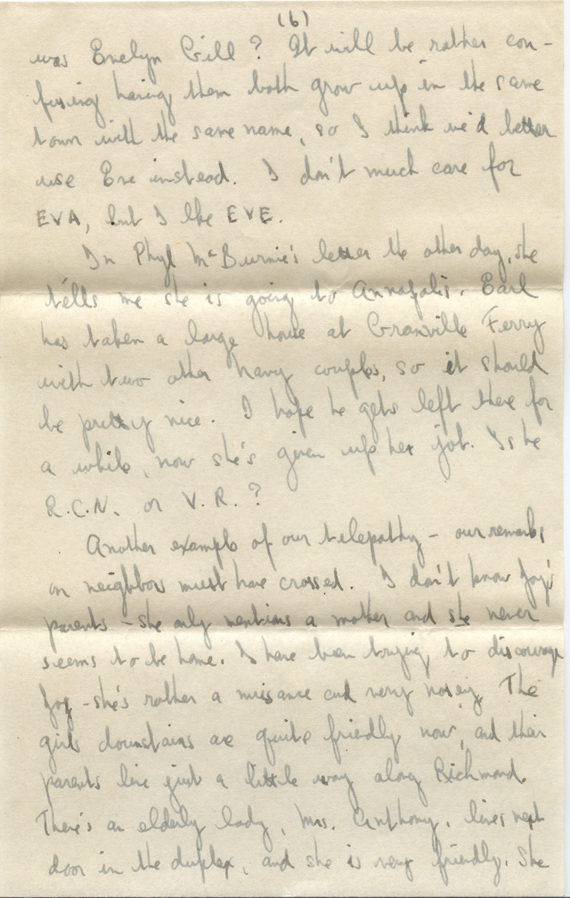 (6)
was Evelyn Gill? It will be rather con-
fusing having them both grow up in the same
town with the same name, so I think we'd better
use Eve instead. I don't much care for
EVA, but I like EVE.
In Phyl McBurnie's letter the other day, she
tells me she is going to Annapolis. Earl
has taken a large house at Granville Ferry
with two other Navy couples, so it should
be pretty nice. I hope he gets left there for
a while, now she's given up her job. Is he
R.C.N. or V.R.?
Another example of our telepathy - our remarks
on neighbors must have crossed. I don't know Joy's
parents - she only mentions a mother and she never
seems to be home. I have been trying to discourage
Joy - she's rather a nuisance and very noisy. The
girls downstairs are quite friendly now, and their
parents live just a little way along Richmond.
There's an elderly lady, Mrs. Anthony, lives next
door in the duplex, and she is very friendly. She